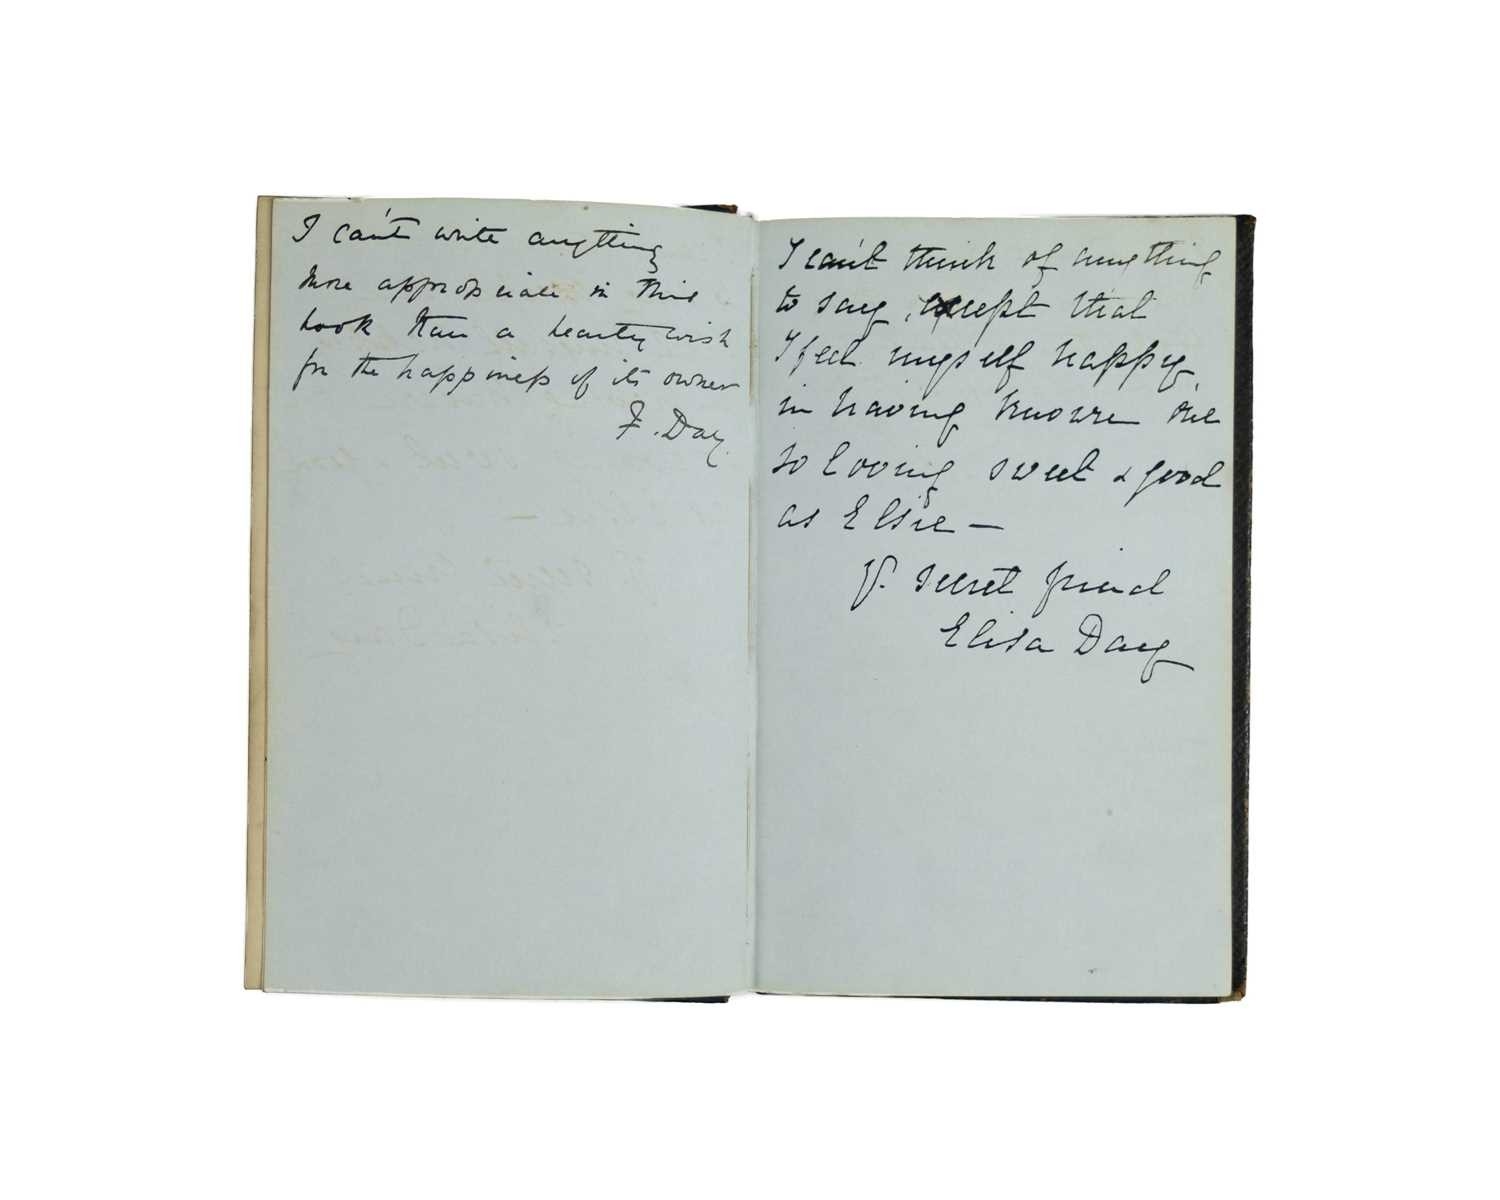 I can't write anything
more appropriate in this
book than a hearty wish
for the happiness of its owner
F. Day.
I can't think of anything
to say, except that
I feel myself happy,
in having known one
so loving sweet & good
as Elsie —
Yr. secret friend
Elisa Day